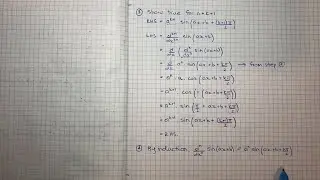 ③ Show true for n=k+1
RHS = a^(k+1) sin(ax+b + (k+1)π/2)
LHS = d^(k+1)/dx^(k+1) sin(ax+b)
= d/dx (d^k/dx^k sin(ax+b))
= d/dx a^k sin(ax+b+kπ/2) → from step ②
= a^k · a cos(ax+b+kπ/2)
= a^(k+1)
= a^(k+1) sin(π/2 + ax+b+kπ/2)
= a^(k+1) sin(ax+b+(k+1)π/2)
= RHS
④ By induction d^n/dx^n sin(ax+b) = a^n sin(ax+b+nπ/2)